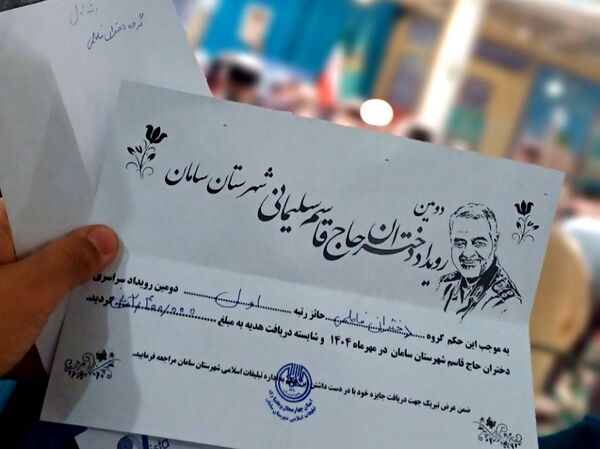 رتبه اول
گروه دختران فاطمی
دومین
رویداد دختران حاج قاسم سلیمانی شهرستان سامان
به موجب این حکم گروه دختران فاطمی حائز رتبه اول دومین رویداد سراسری
دختران حاج قاسم شهرستان سامان در مهرماه ۱۴۰۴ و شایسته دریافت هدیه به مبلغ گردید.
ضمن عرض تبریک جهت دریافت جایزه خود با در دست داشتن اداره تبلیغات اسلامی شهرستان سامان مراجعه فرمایید.
استان چهارمحال و بختیاری
تبلیغات اسلامی شهرستان سامان